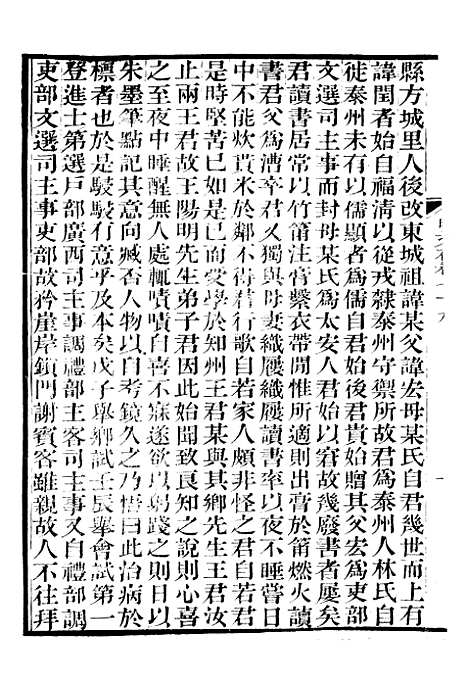 縣方城里人後改東城祖諱某父諱宏母某氏自君幾世而上有
諱閏者始自福清以從戎隸泰州守禦所故君爲泰州人林氏自
徙泰州未有以儒顯者爲儒自君始後君貴始贈其父宏爲吏部
文選司主事而封母某氏爲太安人君始以窘故幾廢書者屢矣
君讀書居常以竹筩注膏繫衣帶間惟所適則出膏於筩燃火讀
書君父爲漕卒君又獨與母妻織屨織屨讀書率以夜不睡嘗日
中不能炊貰米於鄰不得君行歌自若家人頗非怪之君自若君
是時堅苦已如是而受學於知州王君某與其鄉先生王君汝
止兩王君故王陽明先生弟子君因此始聞致良知之說則心喜
之至夜中睡醒無人處輒嘖嘖自喜不寐遂欲以躬踐之則日以
朱墨筆點記其意向臧否人物以自考鏡久之乃悟曰此治病於
標者也於是駸駸有意乎反本矣戊子舉鄉試壬辰舉會試第一
登進士第選戶部廣西司主事調禮部主客司主事又自禮部調
吏部文選司主事吏部故矜崖岸鎖門謝賓客雖親故人不往拜